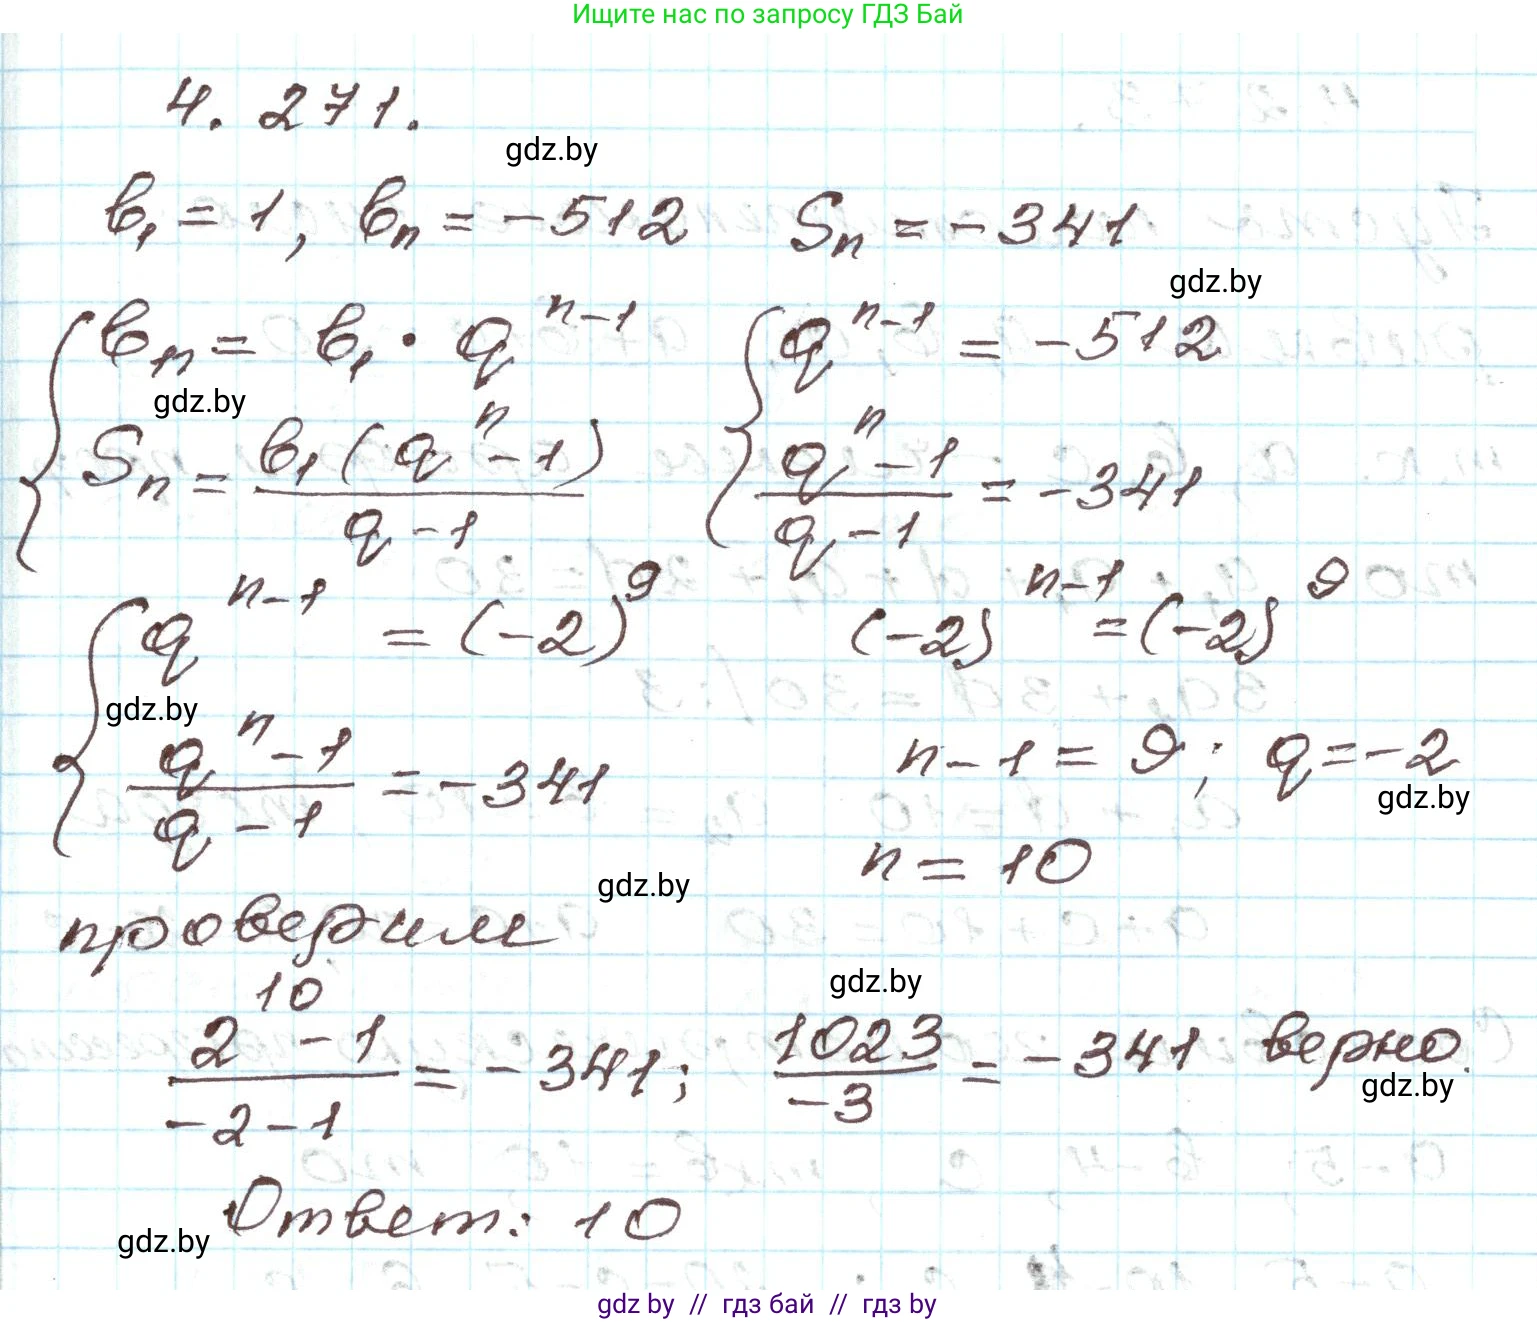 Ищите нас по запросу ГДЗ Бай
4. 271.
gdz.by
b₁ = 1, bₙ = -512 Sₙ = -341
gdz.by
{ bₙ = b₁ · q^(n-1) { q^(n-1) = -512
gdz.by
Sₙ = b₁(qⁿ-1) / (q-1) (qⁿ-1) / (q-1) = -341
{ q^(n-1) = (-2)⁹ (-2)^(n-1) = (-2)⁹
gdz.by
(qⁿ-1) / (q-1) = -341 n-1 = 9; q = -2
gdz.by
n = 10
gdz.by
проверим
gdz.by
(2¹⁰-1) / (-2-1) = -341; 1023 / -3 = -341 верно.
gdz.by
Ответ: 10
gdz.by
gdz by // гдз бай // гдз by